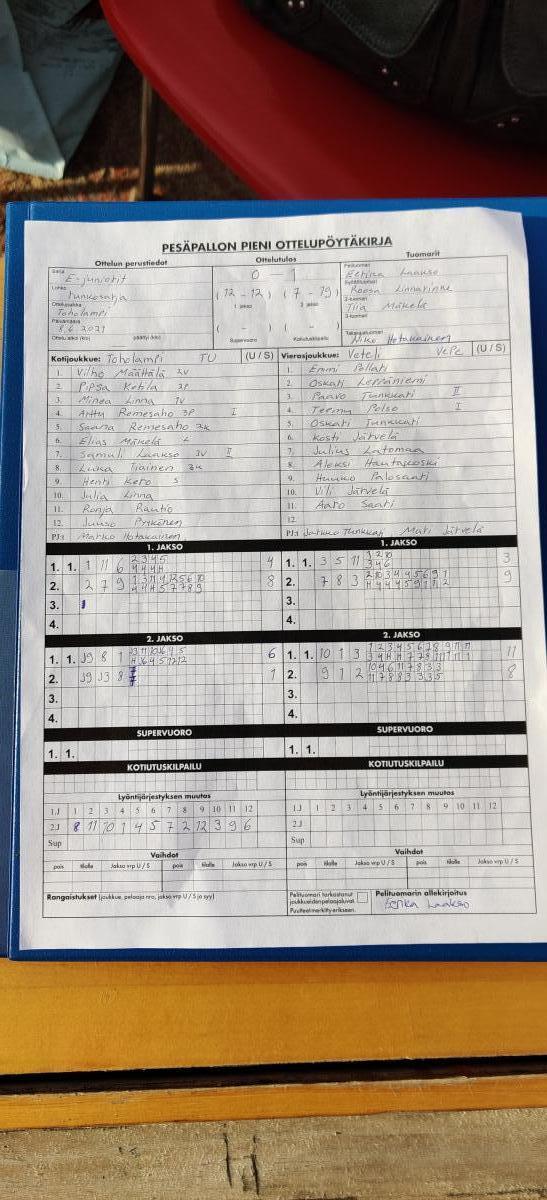 PESÄPALLON PIENI OTTELUPÖYTÄKIRJA
Ottelun perustiedot Ottelutulos Tuomarit
Sarja E-juniorit
Lohko Tunkosarja
Ottelupaikka Toholampi
Päivämäärä 8.6.2021
Otteluaika (klo) päättyi (klo)
0 - 1
(12 - 12) (7 - 19)
1. jakso 2. jakso
( ) ( - )
Supervuoro Kotiutuskilpailu
Pelituomari Eerika Laakso
Syöttötuomari Roosa Linnarinne
2-tuomari Tiia Mäkelä
3-tuomari
Takarajatuomari Niko Hotakainen
Kotijoukkue: Toholampi TU (U / S)
1. Vilho Määttälä 2V
2. Pipsa Kotila 2P
3. Minea Linna 1V
4. Arttu Remesaho 3P I
5. Saana Remesaho 2K
6. Elias Mäkelä L
7. Samuli Laakso 3V II
8. Luka Tiainen 3K
9. Henri Kero S
10. Julia Linna
11. Ronja Rautio
12. Juuso
PJ: Marko Hotakainen
Vierasjoukkue: Veteli VePe (U / S)
1. Emmi Pollari
2. Oskari Leppäniemi
3. Paavo Tunkkari II
4. Teemu Polso I
5. Oskari Tunkkari
6. Kosti Järvelä
7. Julius Latomaa
8. Aleksi Hautakoski
9. Huuko Palosaari
10. Vili Järvelä
11. Aaro Saari
12.
PJ: Jarkko Tunkkari Mati Järvelä
1. JAKSO
1. 1. 1 11 6 2 3 4 5 4
4 4 4 H
2. 2 7 9 8
3.
4.
1. JAKSO
1. 1. 3 5 11 3
3 4 6
2. 7 8 3 9
3.
4.
2. JAKSO
1. 1. J9 8 1 6
2. J9 J3 8 1
3.
4.
2. JAKSO
1. 1. 10 1 3 11
2. 9 1 2 8
3.
4.
SUPERVUORO
1. 1.
SUPERVUORO
1. 1.
KOTIUTUSKILPAILU
KOTIUTUSKILPAILU
Lyöntijärjestyksen muutos
1.J 1 2 3 4 5 6 7 8 9 10 11 12
2.J 8 11 10 1 4 5 7 2 12 3 9 6
Sup
Lyöntijärjestyksen muutos
1.J 1 2 3 4 5 6 7 8 9 10 11 12
2.J
Sup
Vaihdot
pois tilalle Jakso vrp U / S pois tilalle Jakso vrp U / S
Vaihdot
pois tilalle Jakso vrp U / S pois tilalle Jakso vrp U / S
Rangaistukset (joukkue, pelaaja nro, jakso vrp U / S ja syy)
Pelituomari tarkastanut
joukkueiden pelaajaluvat
Puutteet merkitty erikseen.
Pelituomarin allekirjoitus
Eerika Laakso